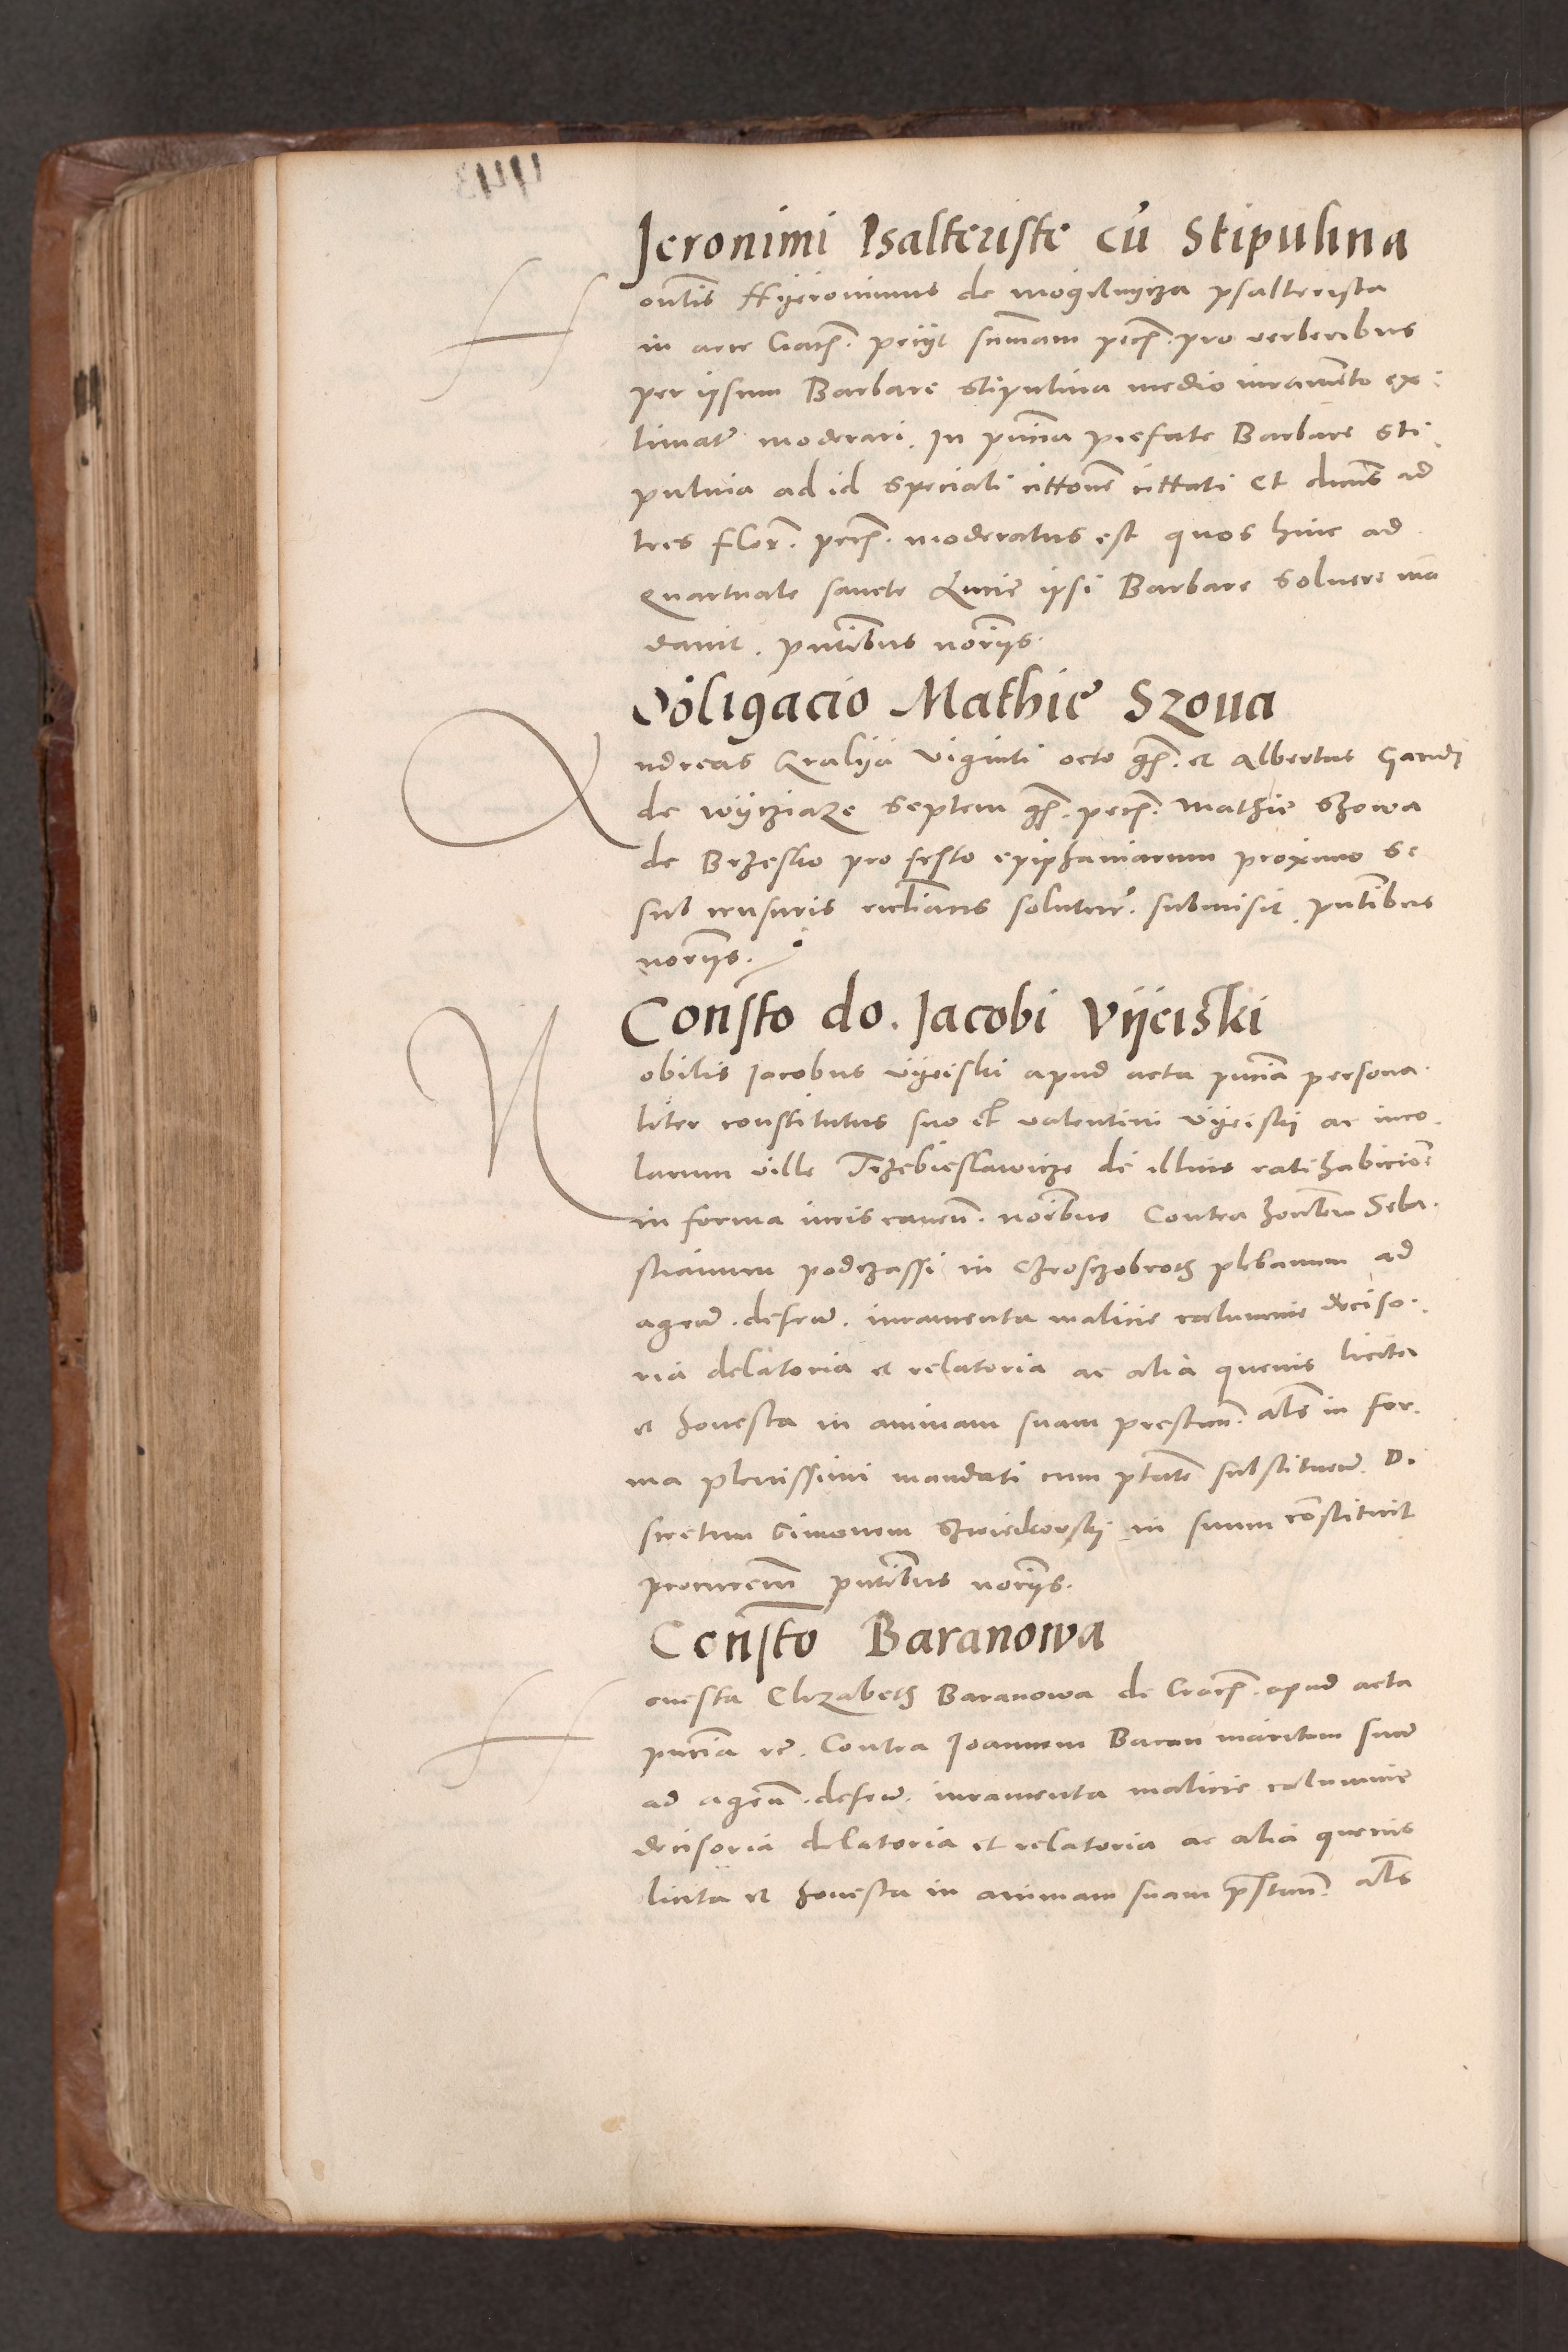 Jeronimi Psalteriste cū Stipulina
Honēlis Hyeronimus de mogelnycza psalterista
in arce Crach. petyt summam pech. pro verberibus
per ipsum Barbare Stipulina medio iuramēto ex
timatā moderari. In pn̄cia prefate Barbare Sti
pulina ad id speciali cittone cittati Et dnus ad
tres flor. pech. moderatus est quos hinc ad
quartuale sancte Lucie ipsi Barbare soluere mā
dauit. pn̄tibus noriis.
Obligacio Mathie Szoua
Andreas Gralya viginti octo gs. et Albertus
de wycziaze Septem gs. pech. Mathie Szowa
de Brzesko pro festo epiphaniarum proximo se
sub censuris ecclīaris soluturū. submisit pn̄tibus
noriis.
Consto do. Jacobi Vyeiski
Nobilis Jacobus vyeiski apud acta pn̄cia persona
liter constitutus suo et valentini vyeiski ac inco
larum ville Trzebieslawicze de illius ratihabicioē
in forma iuris cauen. noibus Contra honblem Seba
stianum podczassi in Chroszobroth plebanum ad
agend. defend. iuramenta malicie calumnie deciso
ria delatoria et relatoria ac alia quevis licita
et honesta in animam suam prestand. als in for
ma plenissimi mandati cum ptāte substituend. Di
scretum Simonem Szwiedkowski in suum constituit
procurem pn̄tibus noriis.
Consto Baranowa
Honesta Elizabeth Baranowa de Crach. apud acta
pn̄cia re. Contra Joannem Baran maritum suum
ad agend. defend. iuramenta malicie calumnie
decisoria delatoria et relatoria ac alia quevis
licita et honesta in animam suam pstand. als